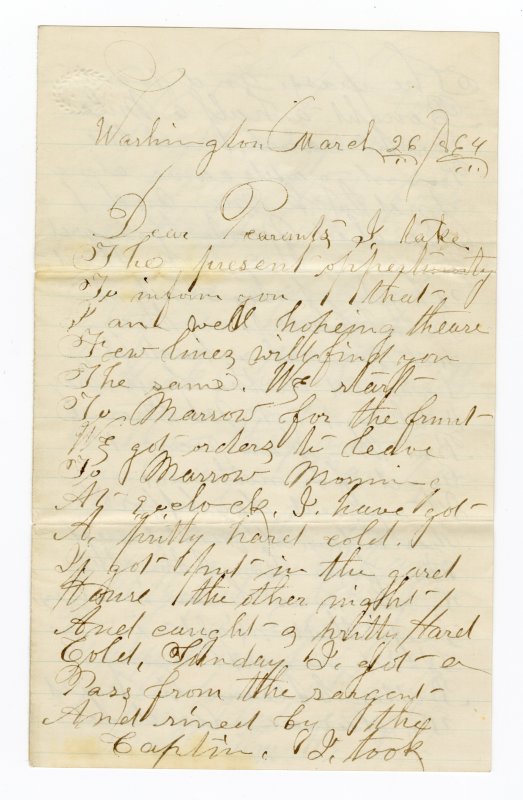 Washington March 26 / 864
Dear Pearents I take
The present oppertunity
To inform you that
I am well hopeing theare
Few lines will find you
The same. We start
To Marrow for the frunt
We got orders to leave
To Marrow Morning
At 9 o clock. I. have got
A. pritty hard cold.
I. got put in the gard
House the other night
And caught a pritty Hard
Cold, Sunday I. got a
Pass from the sargent
And sined by the
Captin. I. took